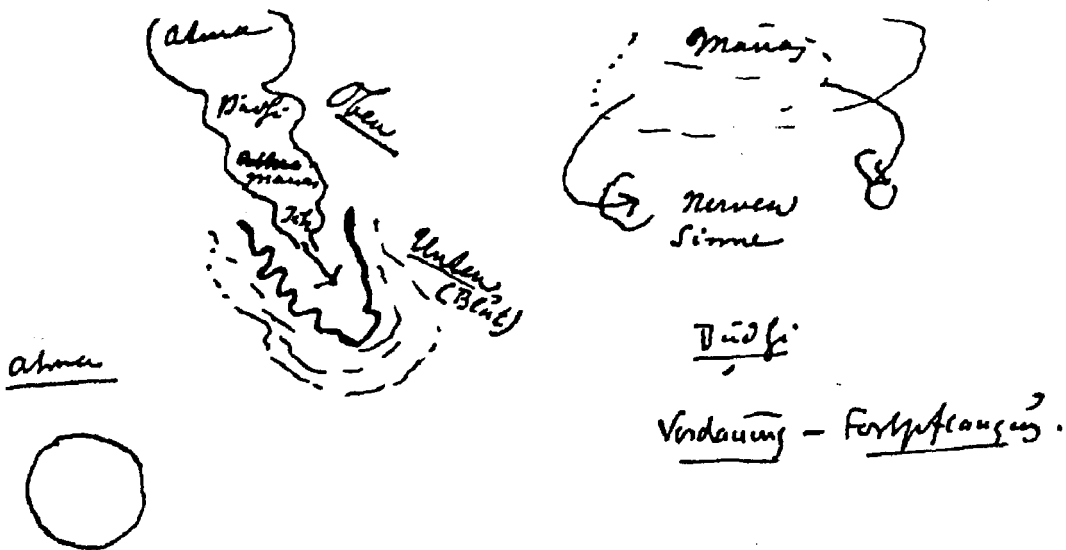 Atma
Budhi
Manas
Ich
Oben
Unten
(Blut)
Atma
Manas
Nerven
Sinne
Budhi
Verdauung – Fortpflanzung.